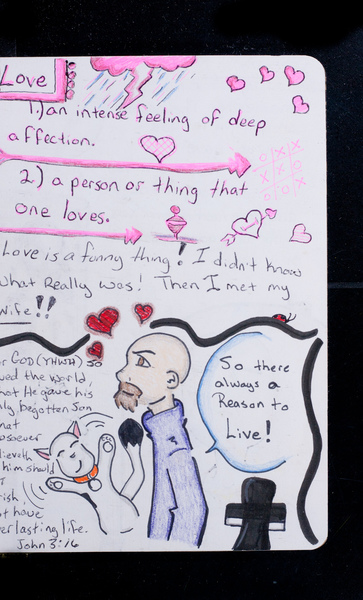 Love
1.) an intense feeling of deep
affection.
2.) a person or thing that
one loves.
Love is a funny thing! I didn't know
what Really was! Then I met my
wife!!
or GOD (YHWH) so
ved the world,
hat He gave his
nly begotten Son
hat
hosoever
lieveth
him should
rish
t have
erlasting life.
John 3:16
So there
always a
Reason to
Live!